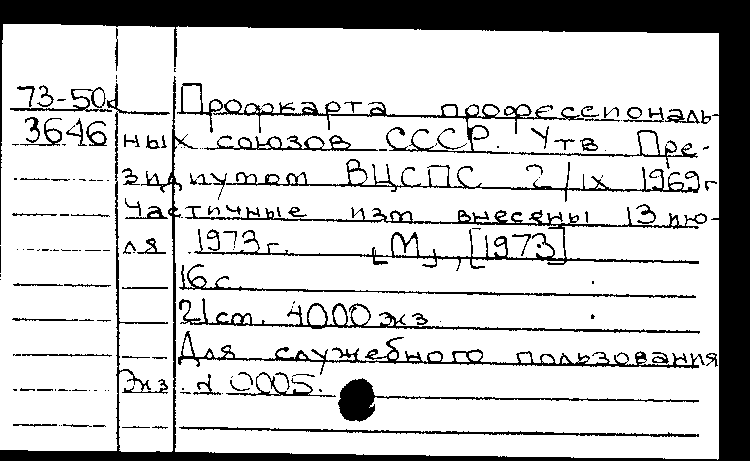 73-50к Профкарта профессиональ-
3646 ных союзов СССР. Утв. Пре-
зидиумом ВЦСПС 2/IX 1969г
Частичные изм внесены 13 ию-
ля 1973г. [М], [1973]
16 с.
21 ст. 4000 экз
Для служебного пользования
Экз. № 0005.